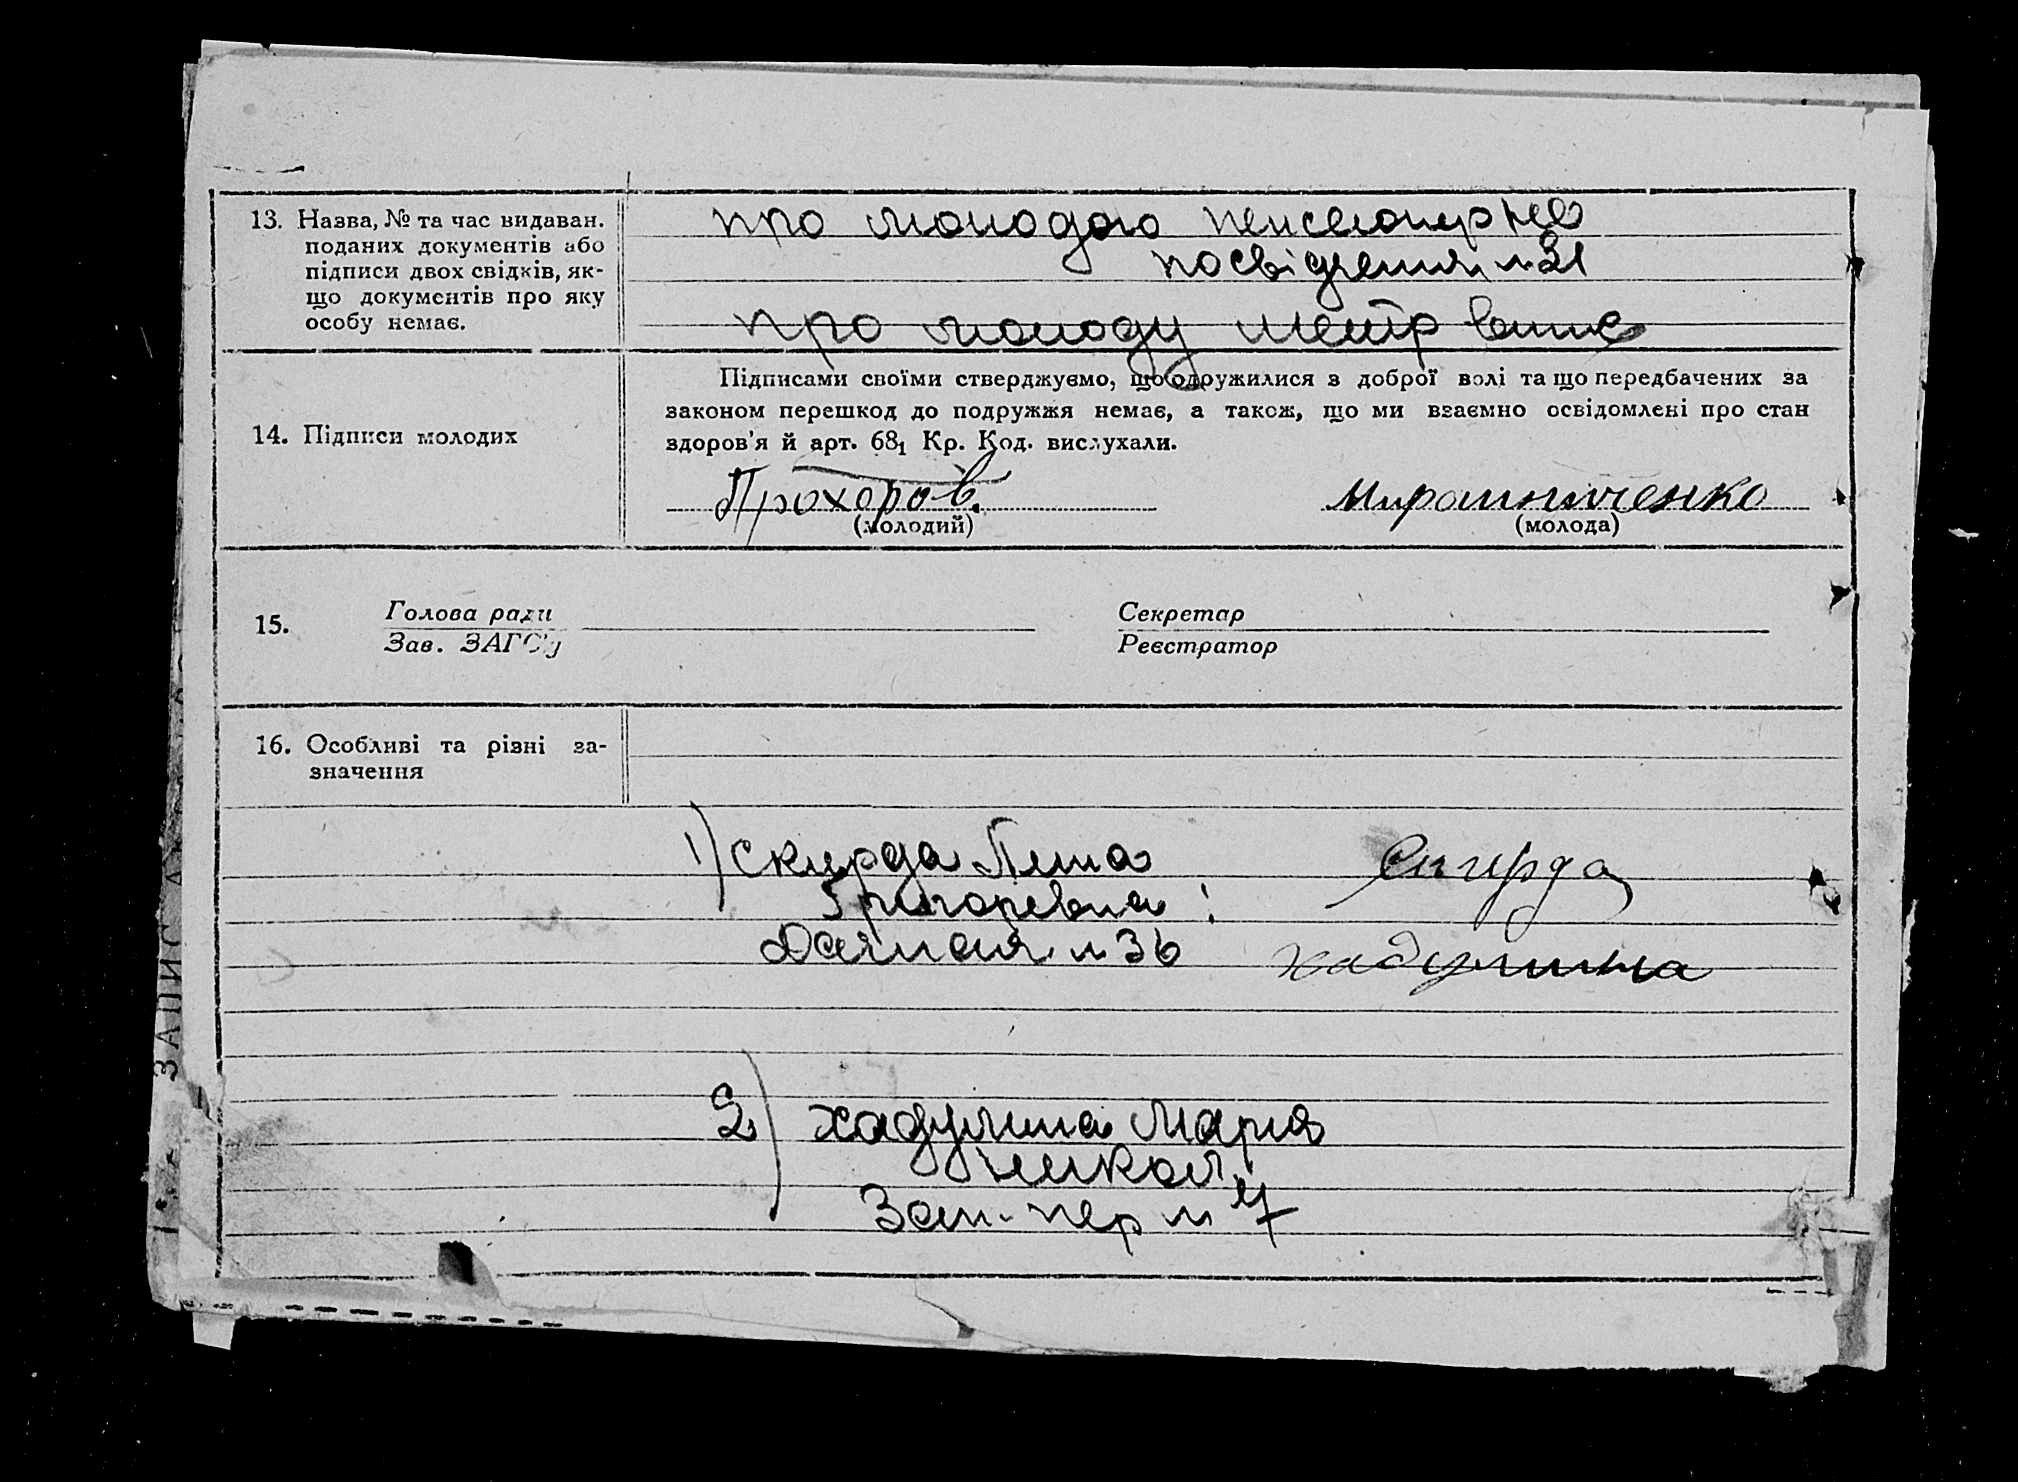 13. Назва, № та час видаван.
поданих документів або
підписи двох свідків, як-
що документів про яку
особу немає.
про молодого пенсіонерне
посвідчення № 21
про молоду метр
14. Підписи молодих
Підписами своїми стверджуємо, що одружилися з доброї волі та що передбачених за
законом перешкод до подружжя немає, а також, що ми взаємно освідомлені про стан
здоров'я й арт. 68₁ Кр. Код. вислухали.
Прохоров. Мирошниченко
(молодий) (молода)
15. Голова ради Секретар
Зав. ЗАГС'у Реєстратор
16. Особливі та різні за-
значення
1) Скирда
Григоревна
Дачная № 36
Скирда
Хадунина
2) Хадунина Мария
Никол
Зап. пер № 17
ЗАПИС